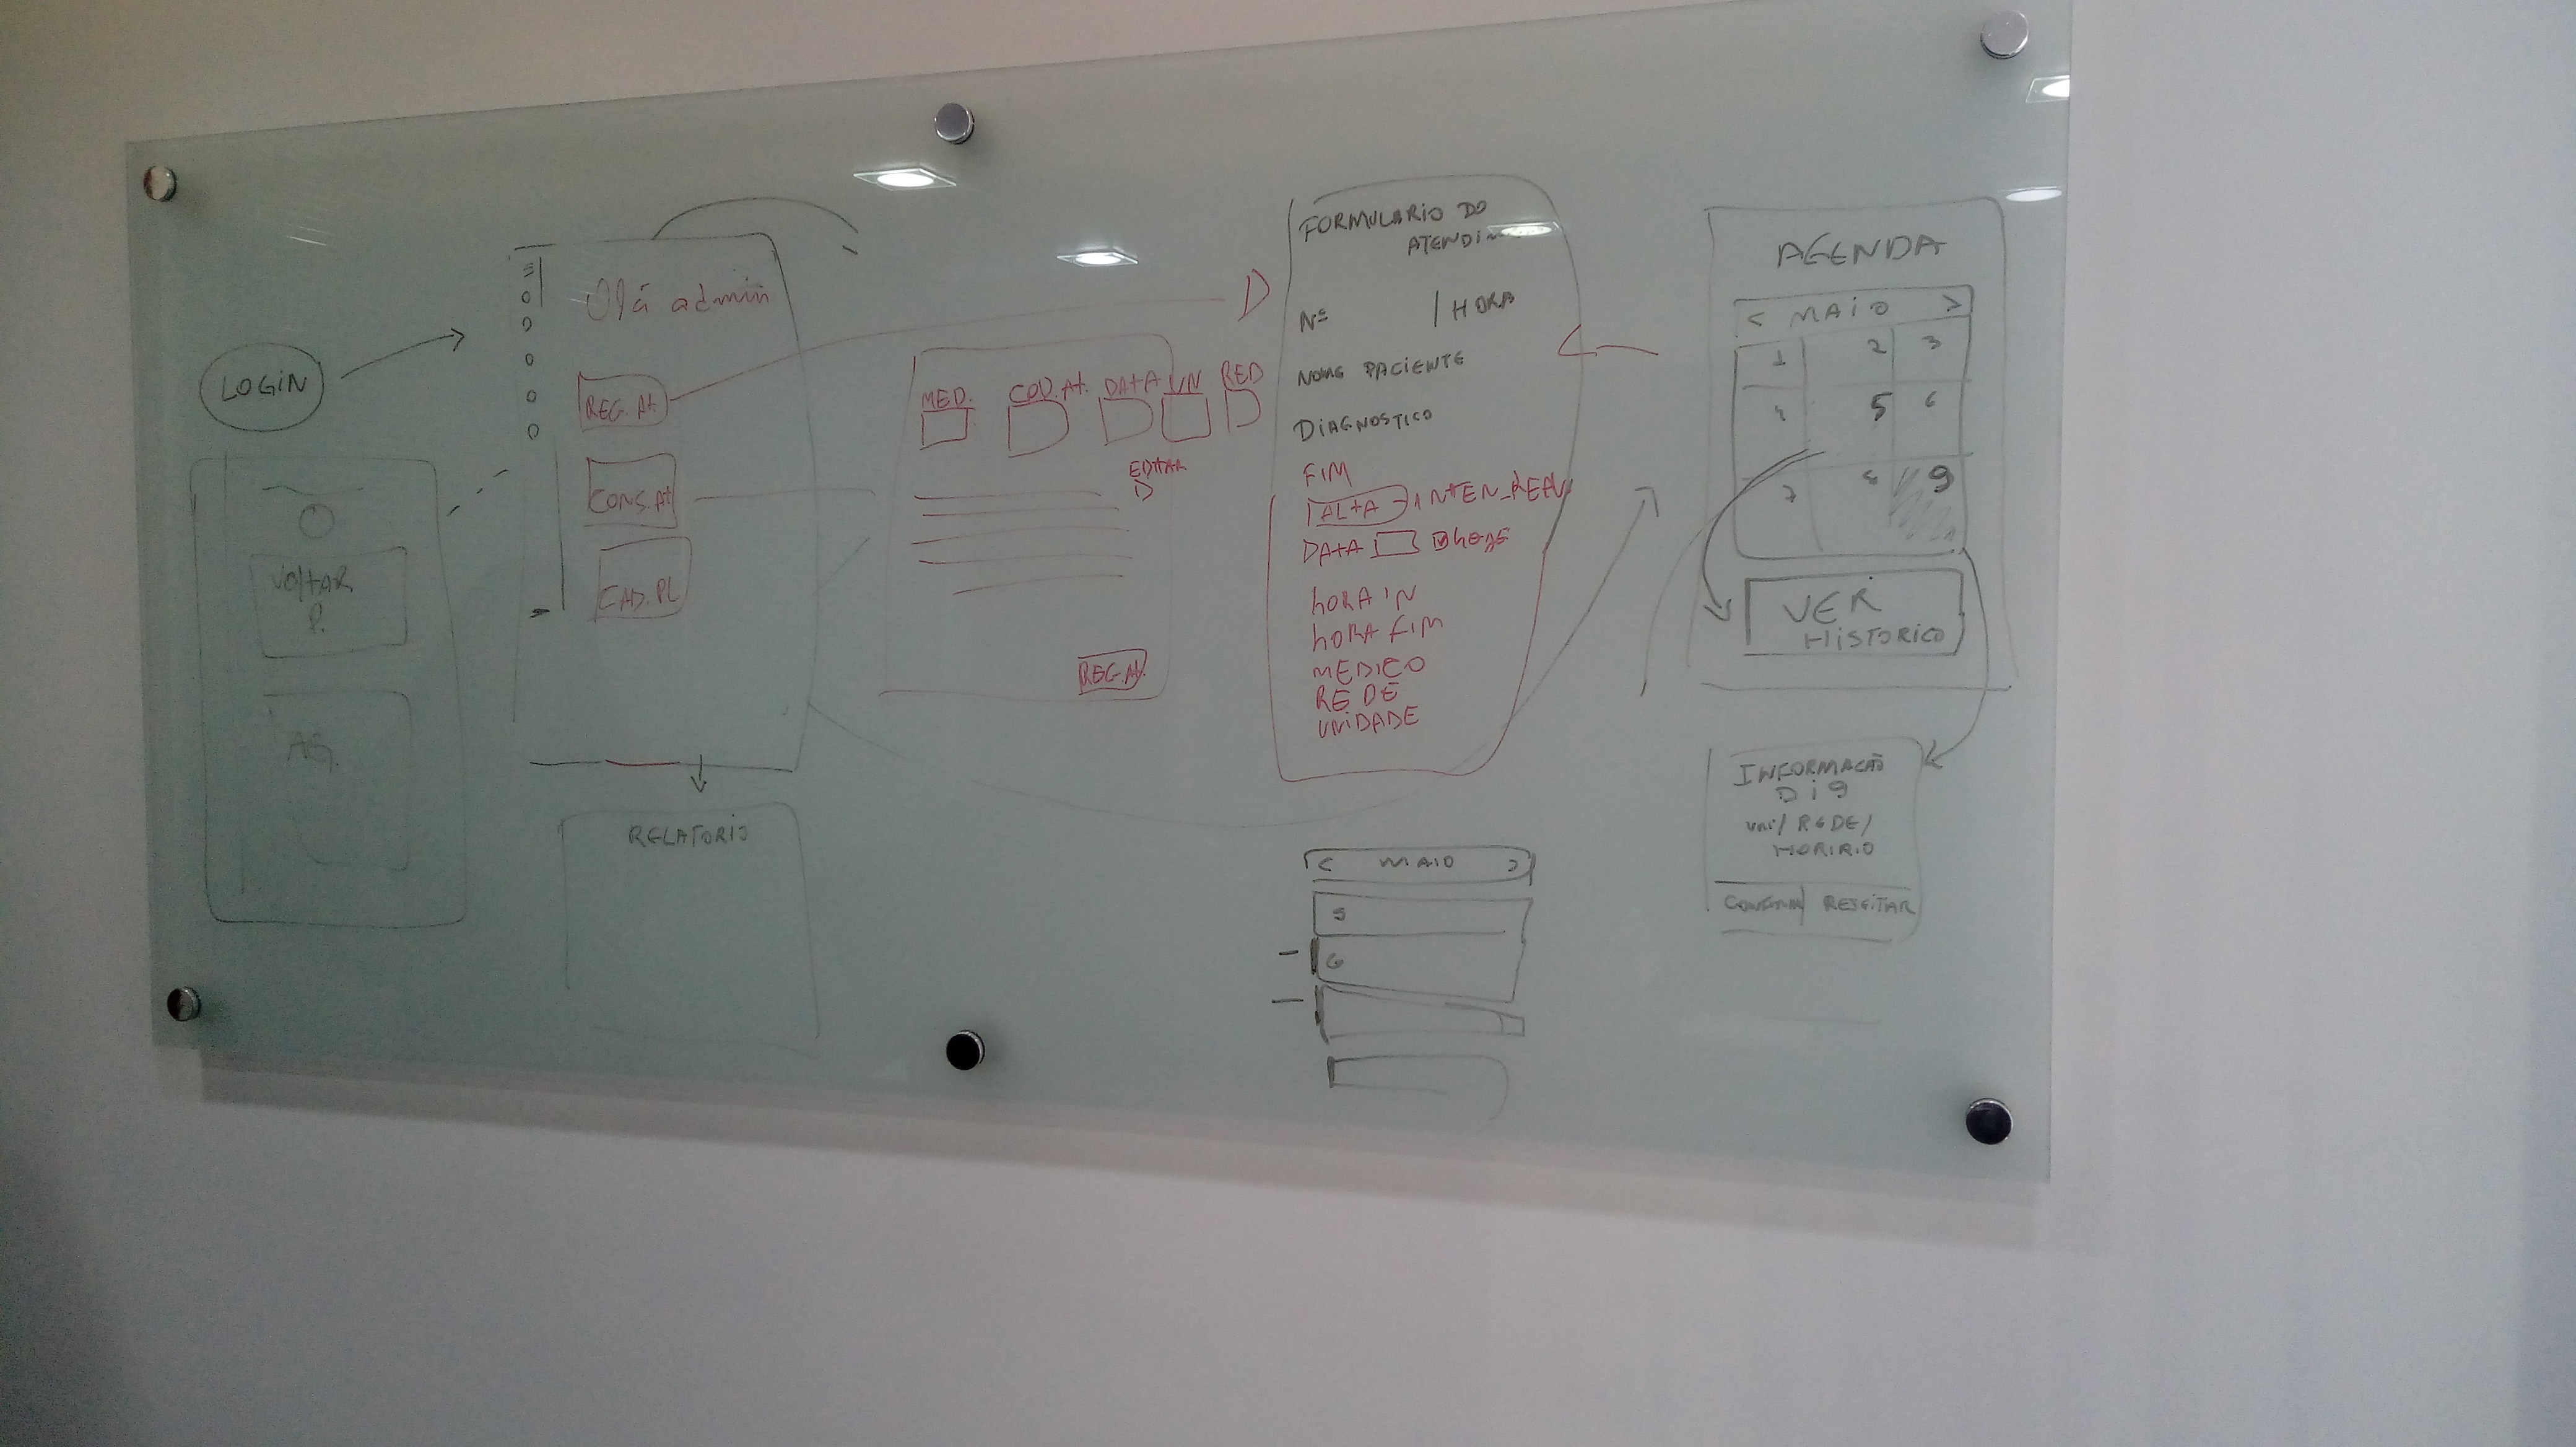 LOGIN
VOLTAR
P.
AG.
Olá admin
REG. At.
CONS. At
CAD. PL
RELATORIO
MED. COD. At. DATA UN RED
EDITAR
REG. At.
FORMULARIO DO
Nº / HORA
NOME PACIENTE
DIAGNOSTICO
FIM
ALTA
DATA hoje
hORA IN
hORA FIM
MEDICO
REDE
UNIDADE
< MAIO >
5
6
AGENDA
< MAIO >
1 2 3
4 5 6
7 8 9
VER
HISTORICO
INFORMAÇÃO
DI 9
uni/ REDE/
HORIRIO
REJEITAR